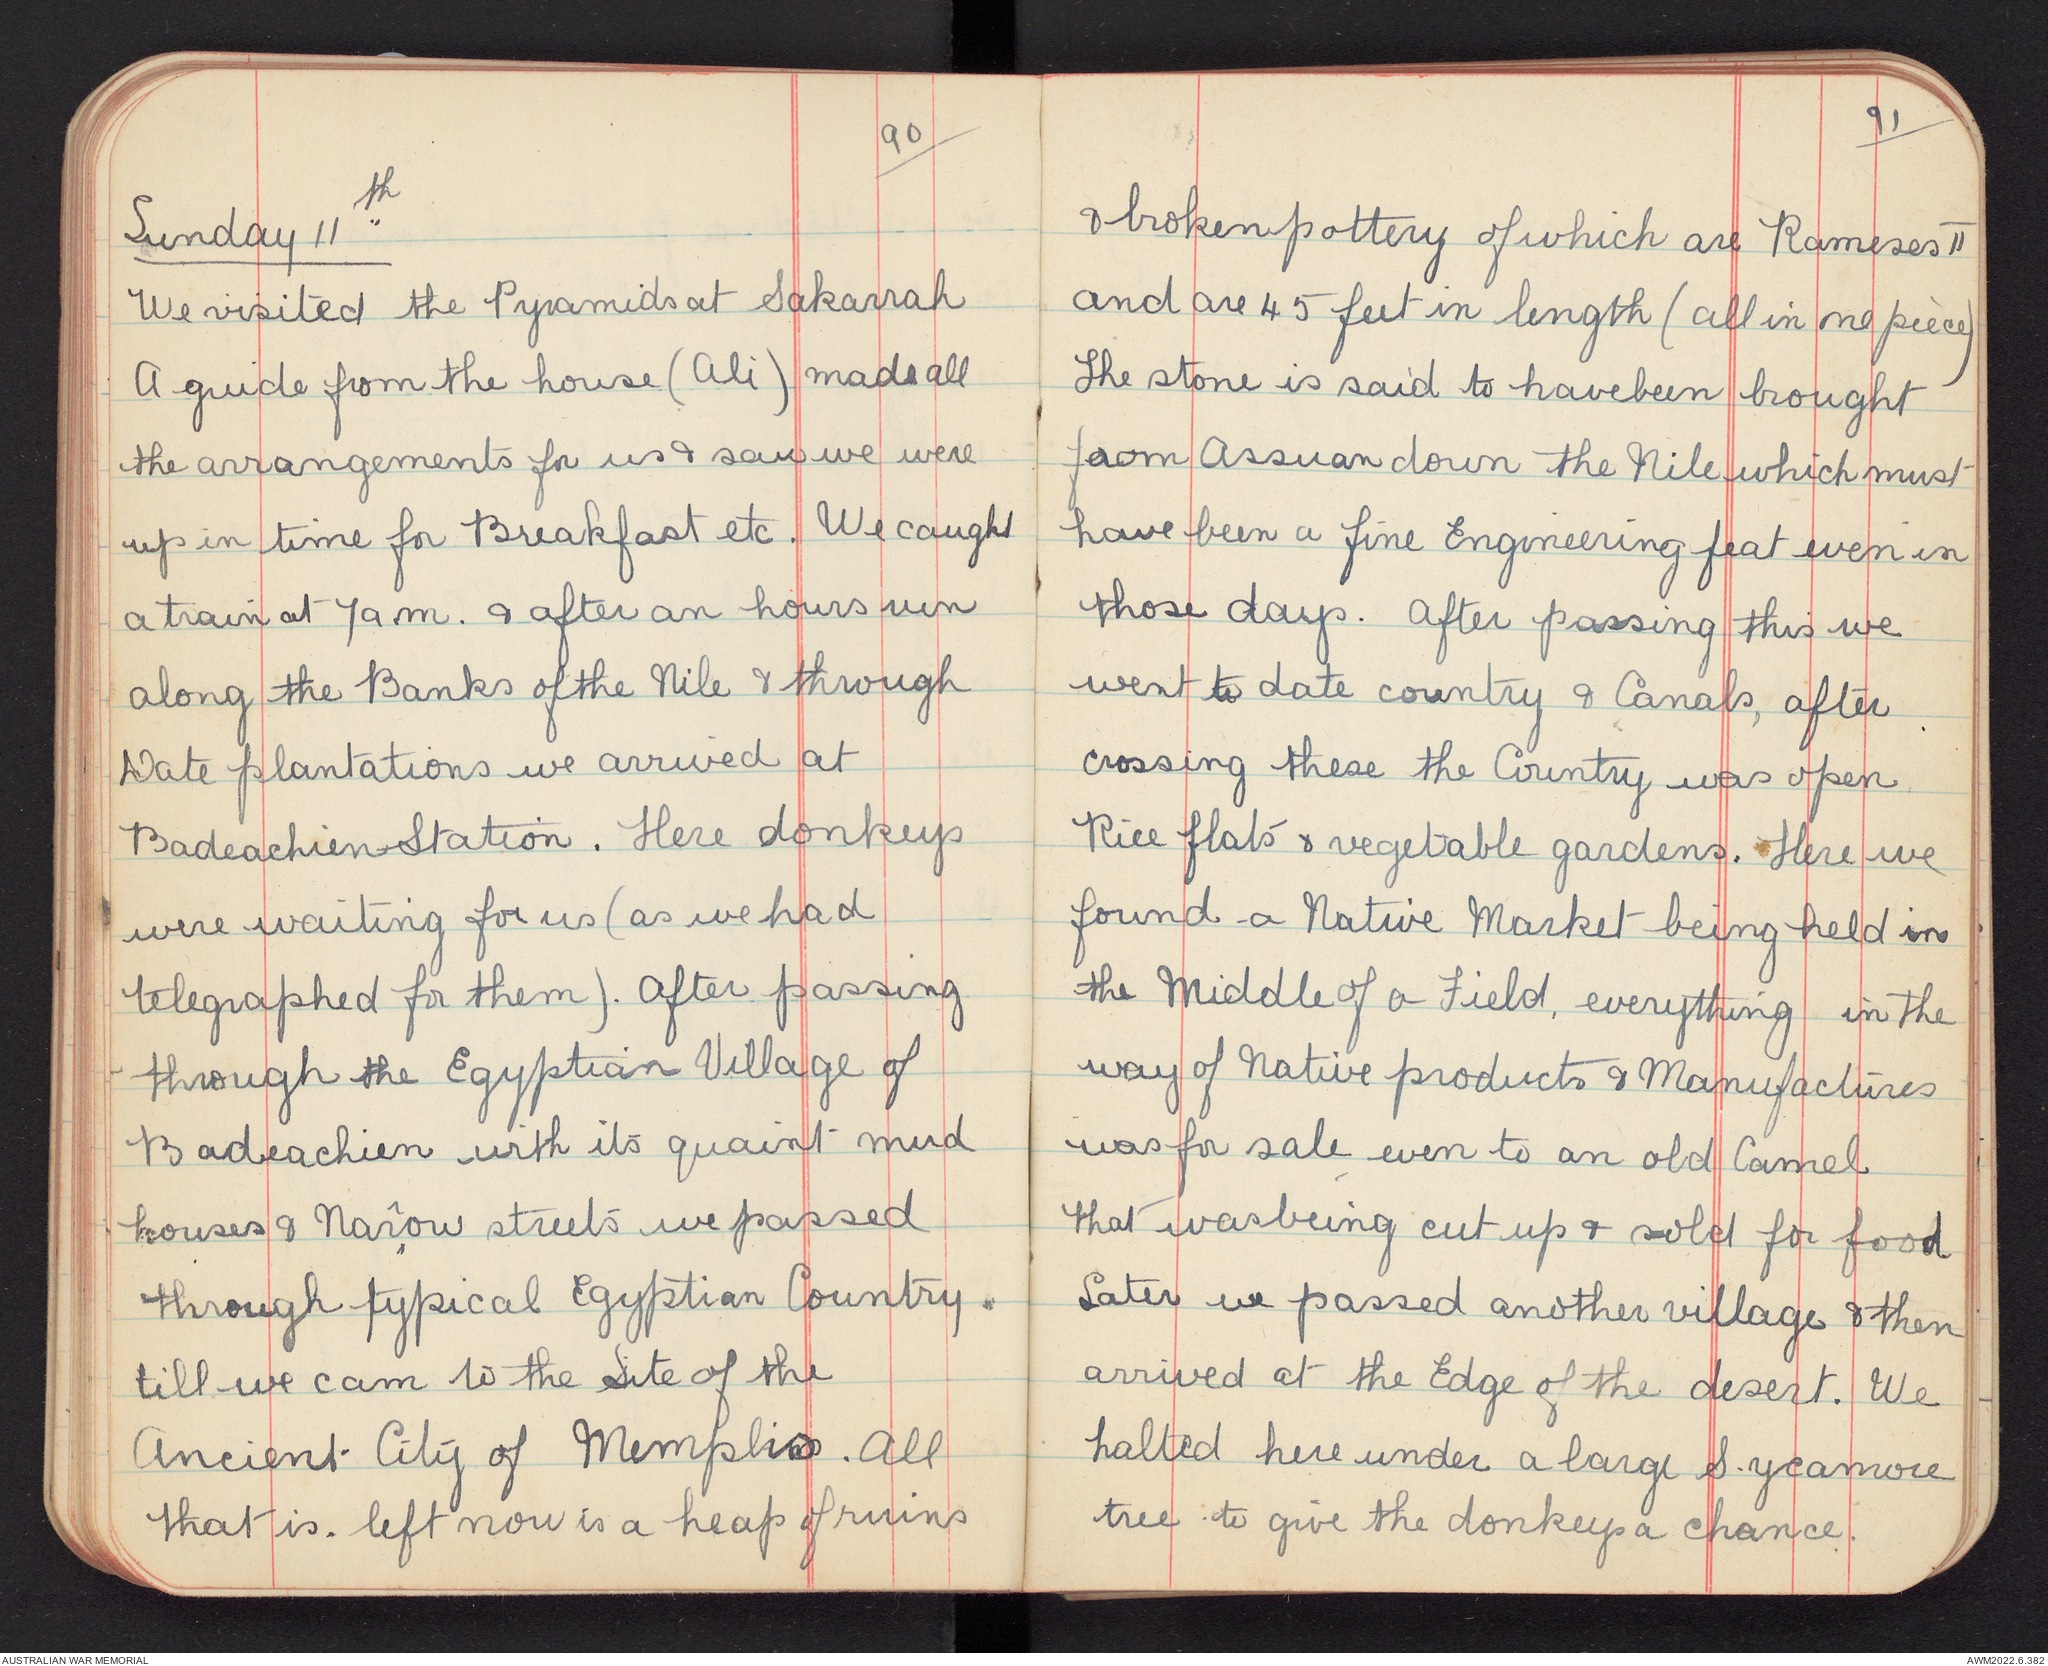 90
Sunday 11th
We visited the Pyramids at Sakarrah
A guide from the house (Ali) made all
the arrangements for us & saw we were
up in time for Breakfast etc. We caught
a train at 7 a.m. & after an hours run
along the Banks of the Nile & through
Date plantations we arrived at
Badeachien Station. Here donkeys
were waiting for us (as we had
telegraphed for them). After passing
through the Egyptian Village of
Badeachien with its quaint mud
houses & Narrow streets we passed
through typical Egyptian Country.
till we cam to the Site of the
Ancient City of Memphis. All
that is. left now is a heap of ruins
91
& broken pottery of which are Rameses II
and are 45 feet in length (all in one piece)
The stone is said to have been brought
from Assuan down the Nile which must
have been a fine Engineering feat even in
those days. After passing this we
went to date country & Canals, after
crossing these the Country was open
Rice flats & vegetable gardens. Here we
found a Native Market being held in
the Middle of a Field, everything in the
way of Native products & Manufactures
was for sale even to an old Camel
that was being cut up & sold for food
Later we passed another village & then
arrived at the Edge of the desert. We
halted here under a large Sycamore
tree to give the donkeys a chance.
AUSTRALIAN WAR MEMORIAL
AWM2022.6.382